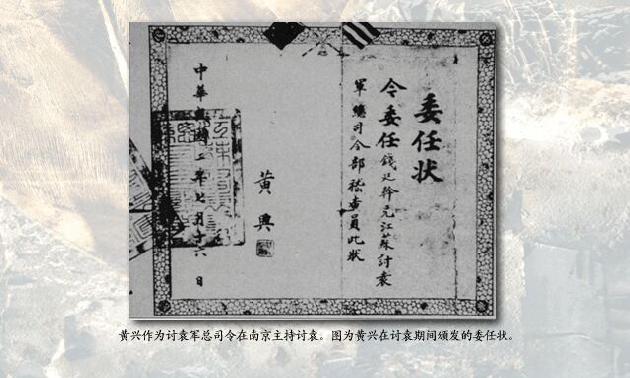 委任状
令委任錢廷幹充江蘇討袁
軍總司令部秘書員此狀
黃興
中華民國二年七月十六日
黄兴作为讨袁军总司令在南京主持讨袁。图为黄兴在讨袁期间颁发的委任状。